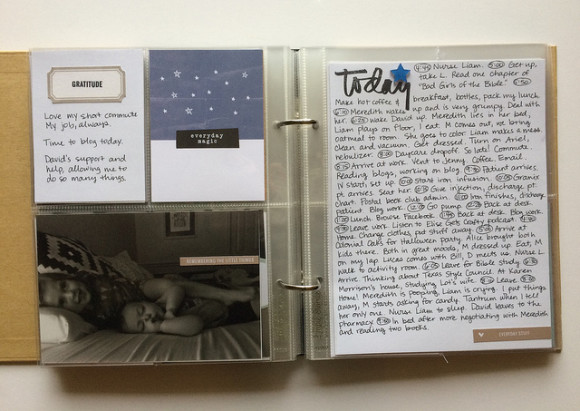 GRATITUDE
Love my short commute
My job, always.
Time to blog today.
David's support and
help, allowing me to
do so many things.
everyday
magic
REMEMBERING THE LITTLE THINGS
today
4:45 Nurse Liam. Get up,
take L. Read one chapter of
"Bad Girls of the Bible."
Make hot coffee & breakfast, bottles, pack my lunch.
Meredith wakes up and is very grumpy. Deal with
her. Wake David up. Meredith lies in her bed,
Liam plays on floor, I eat. M comes out, we bring
oatmeal to room. She goes to color. Liam makes a mess.
Clean and vacuum. Get dressed. Turn on Ariel,
nebulizer. Daycare dropoff. So late! Commute.
Arrive at work. Vent to Jenny. Coffee. Email.
Reading blogs, working on blog. Patient arrives.
IV starts, set up. Start iron infusion. Granix
pt. arrives. Seat her. Give injection, discharge pt.
Chart. Postal book club admin. Iron finishes, discharge
patient. Blog work. Go pump. Back at desk.
Lunch. Browse Facebook. Back at desk. Blog work.
Leave work. Listen to Elise Gets Crafty podcast.
Home. Change clothes, put stuff away. Arrive at
Colonial Oaks for Halloween party. Alice brought both
kids there. Both in great moods, M dressed up. Eat, M
on my lap. Lucas comes with Bill, D meets us. Nurse L.
Walk to activity room. Leave for Bible study.
Arrive. Thinking about Texas Style Council. At Karen
Morrison's house, studying Lot's wife. Leave.
Home! Meredith is peeing, Liam is crying. I put things
away, M starts asking for candy. Tantrum when I tell
her only one. Nurse Liam to sleep. David leaves to the
pharmacy. In bed after more negotiating with Meredith
and reading two books.